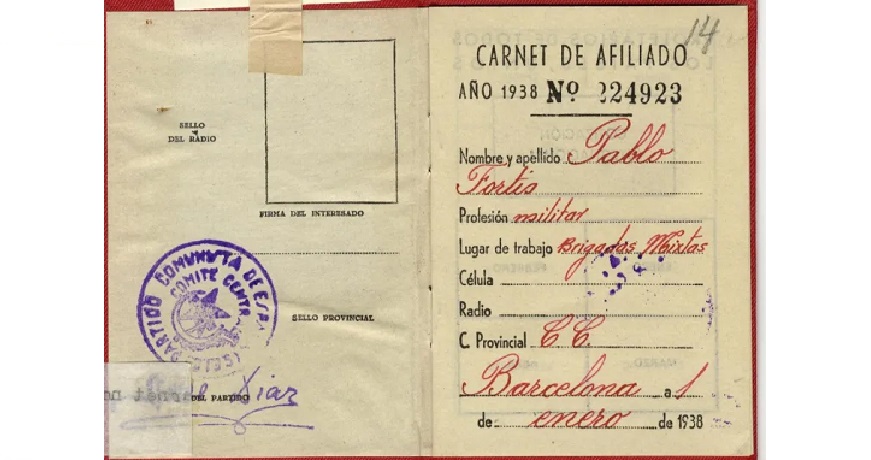 SELLO
DEL RADIO
FIRMA DEL INTERESADO
PARTIDO COMUNISTA DE ESPA
COMITE CENTR
SELLO PROVINCIAL
DEL PARTIDO
Diaz
14
CARNET DE AFILIADO
AÑO 1938 Nº 224923
Nombre y apellido Pablo
Fortis
Profesión militar
Lugar de trabajo Brigadas Mixtas
Célula
Radio
C. Provincial C C.
Barcelona a 1
de enero de 1938